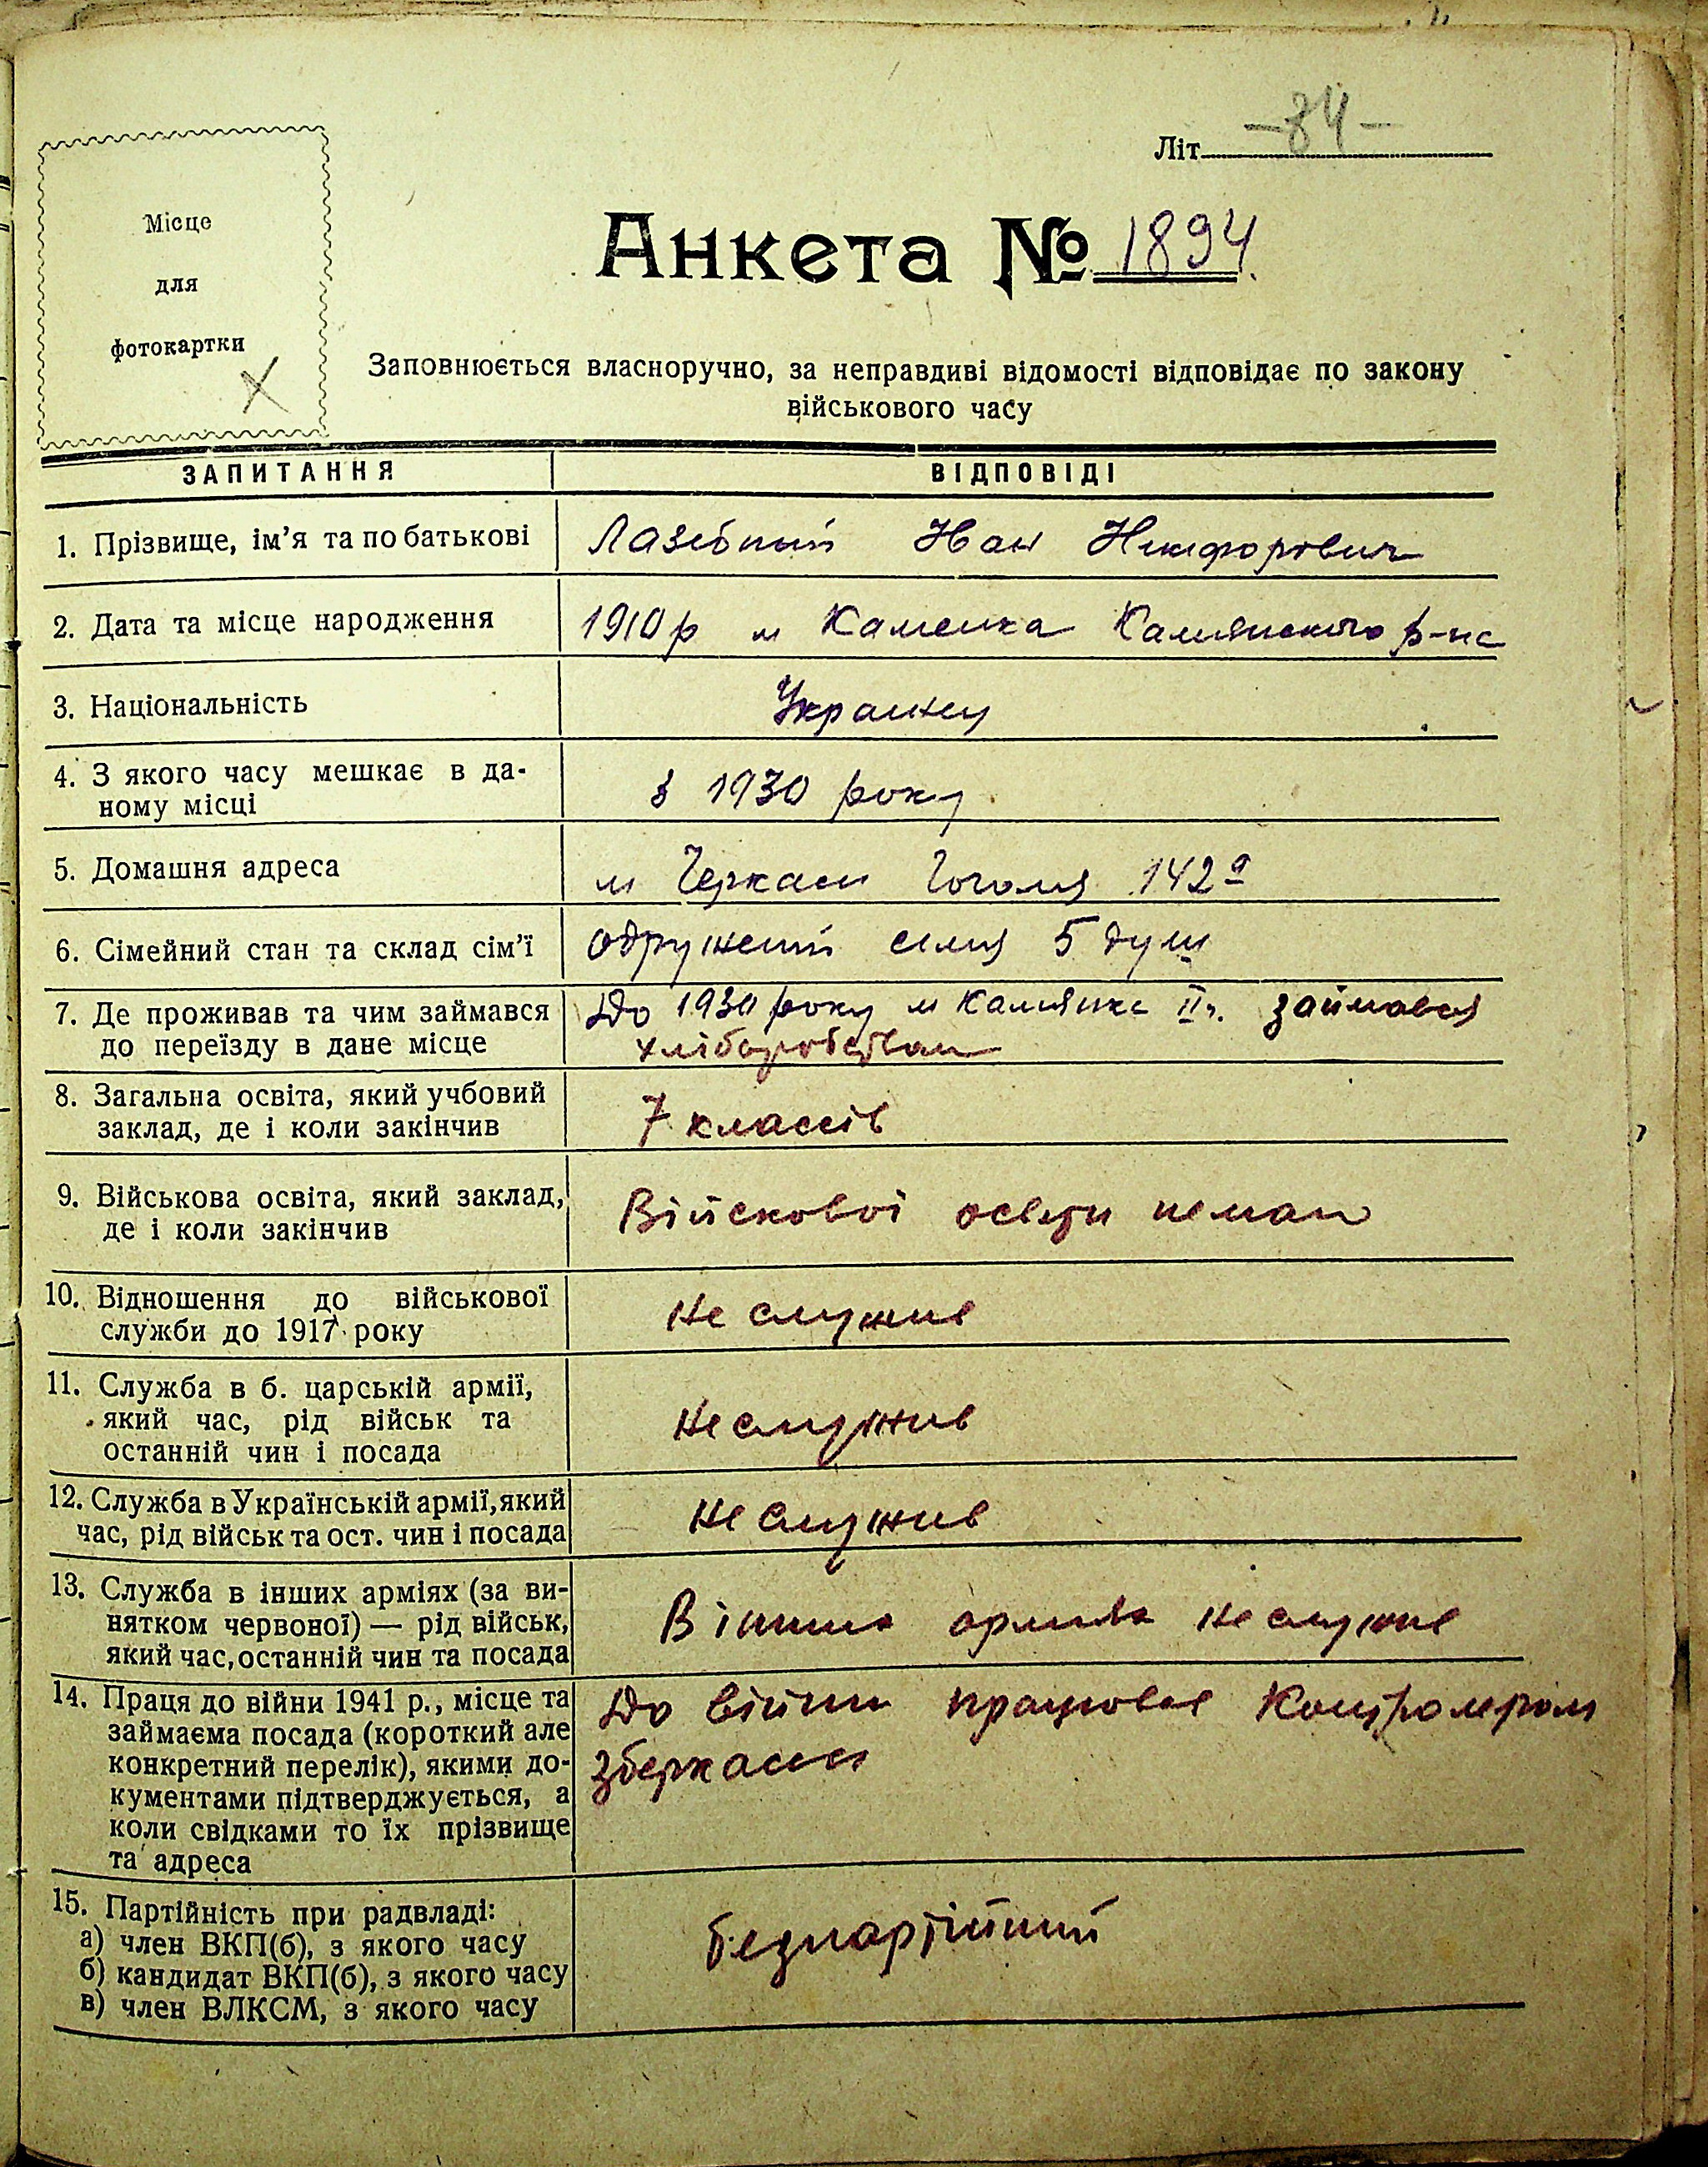 Літ. -84-
Місце
для
фотокартки
Анкета № 1894.
Заповнюється власноручно, за неправдиві відомості відповідає по закону
військового часу
ЗАПИТАННЯ ВІДПОВІДІ
1. Прізвище, ім'я та по батькові Лазебний Іван Никифорович
2. Дата та місце народження 1910 р м Каменка Камянського р-на
3. Національність Украинец
4. З якого часу мешкає в да-
ному місці з 1930 року
5. Домашня адреса м Черкаси Гоголя 142а
6. Сімейний стан та склад сім'ї одружений сімя 5 душ
7. Де проживав та чим займався До 1930 року м Камянка ІІч. займався
до переїзду в дане місце хліборобством
8. Загальна освіта, який учбовий
заклад, де і коли закінчив 7 классів
9. Військова освіта, який заклад,
де і коли закінчив Війскової освіти немаю
10. Відношення до військової
служби до 1917 року не служив
11. Служба в б. царській армії,
який час, рід військ та
останній чин і посада не служив
12. Служба в Українській армії, який
час, рід військ та ост. чин і посада не служив
13. Служба в інших арміях (за ви-
нятком червоної) — рід військ,
який час, останній чин та посада В інших арміях не служив
14. Праця до війни 1941 р., місце та До війни працював Контролером
займаєма посада (короткий але зберкаси
конкретний перелік), якими до-
кументами підтверджується, а
коли свідками то їх прізвище
та адреса
15. Партійність при радвладі:
а) член ВКП(б), з якого часу безпартійний
б) кандидат ВКП(б), з якого часу
в) член ВЛКСМ, з якого часу